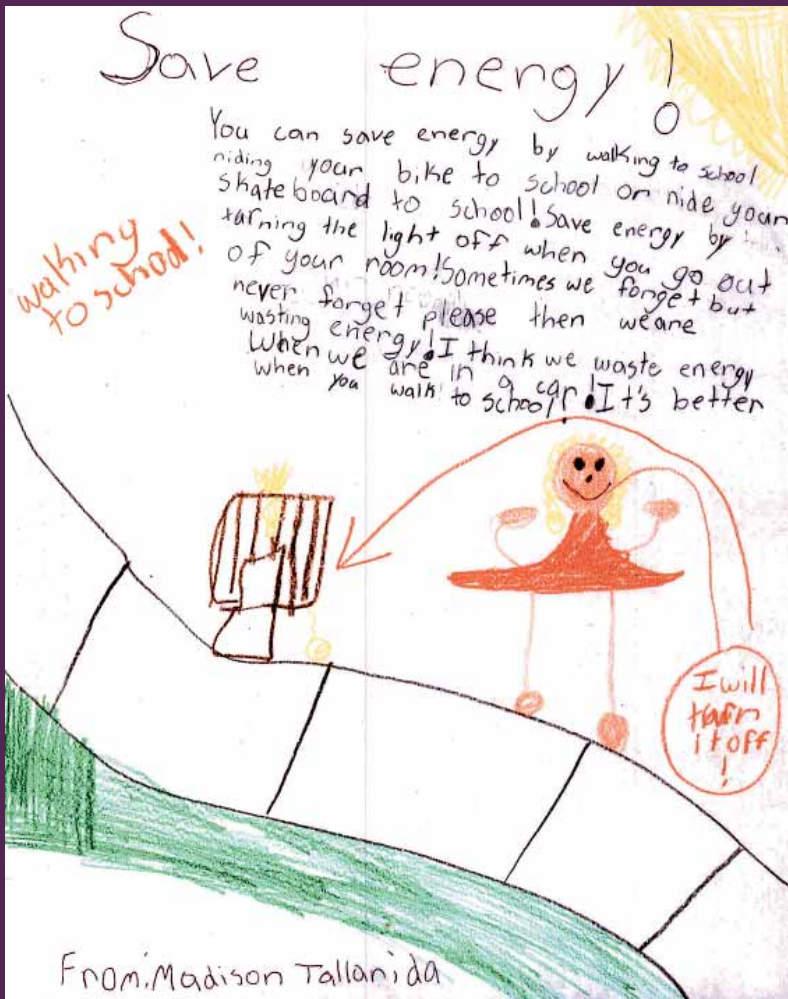 Save energy!
You can save energy by walking to school
riding your bike to school or ride your
skateboard to school! Save energy by
tarning the light off when you go out
of your room! Sometimes we forget but
never forget please then weare
wasting energy! I think we waste energy
When we are in a car! It's better
when you walk to school!
walking
to school!
I will
tarn
it off
!
From: Madison Tallanida